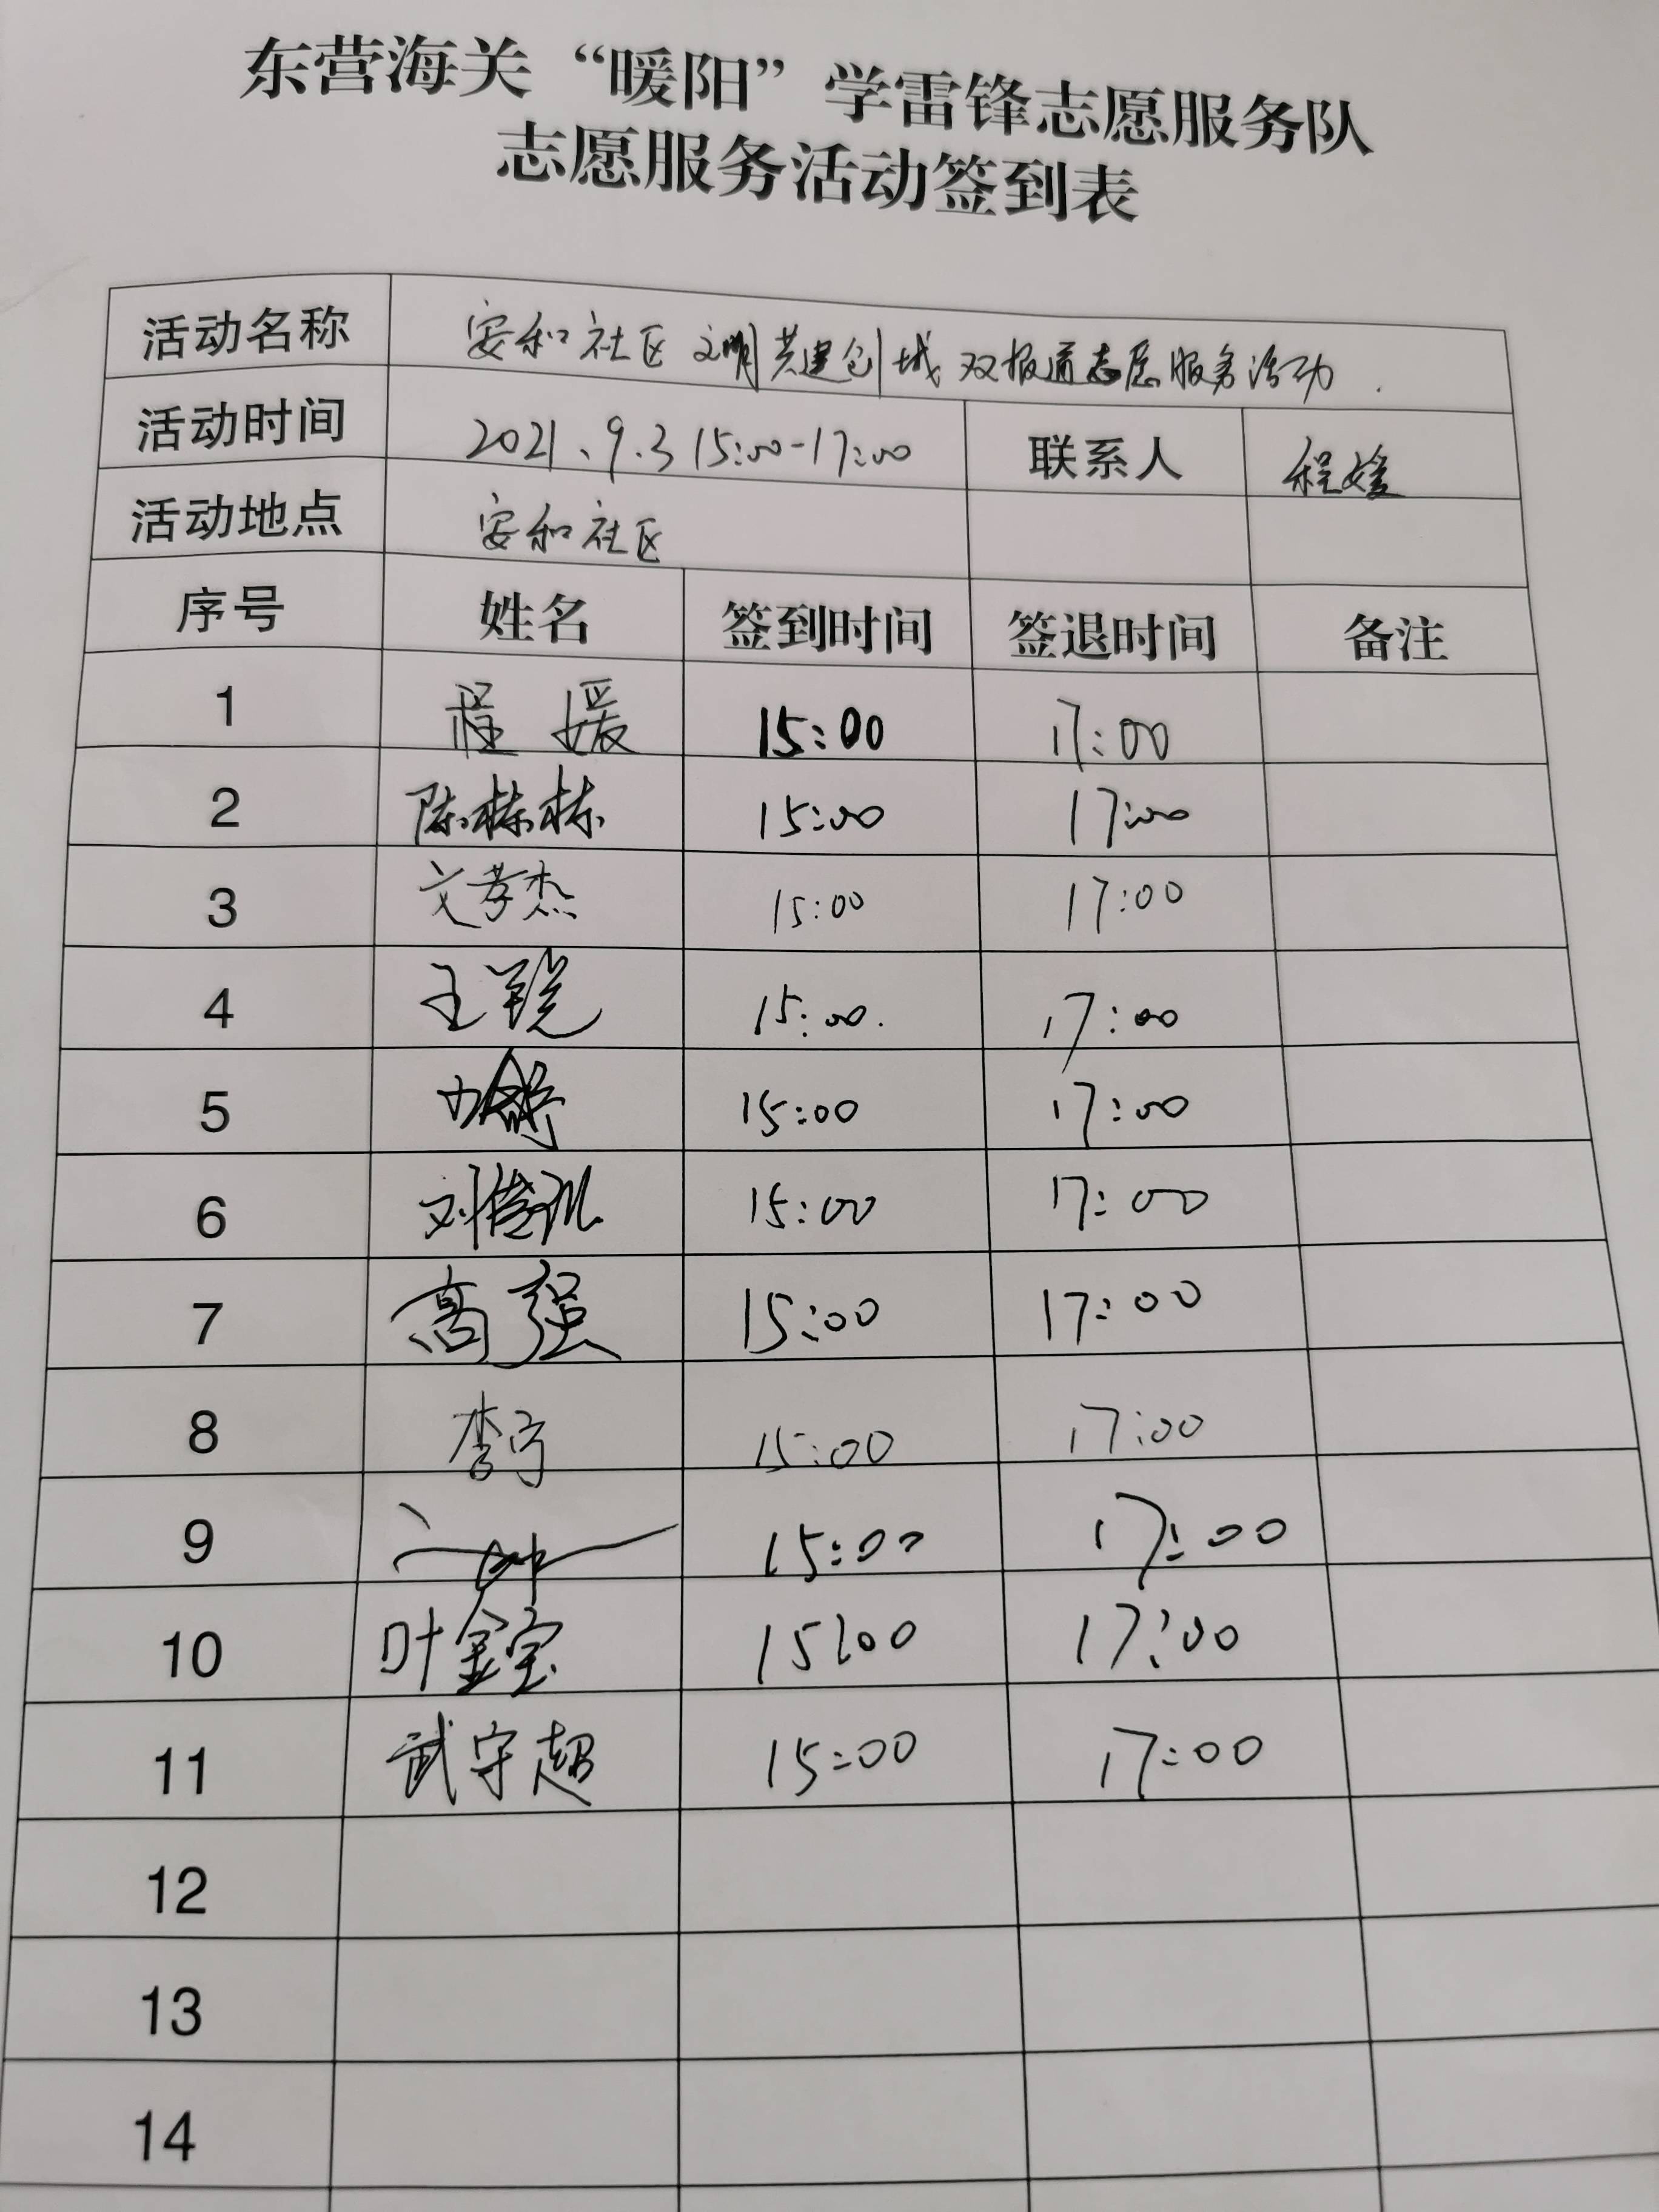 东营海关“暖阳”学雷锋志愿服务队
志愿服务活动签到表
活动名称 安和社区文明共建创城双报通志愿服务活动.
活动时间 2021、9.3 15:00-17:00 联系人 程媛
活动地点 安和社区
序号 姓名 签到时间 签退时间 备注
1 程媛 15:00 17:00
2 陈栋栋 15:00 17:00
3 文孝杰 15:00 17:00
4 王锐 15:00. 17:00
5 15:00 17:00
6 15:00 17:00
7 高强 15:00 17:00
8 李宁 15:00 17:00
9 15:00 17:00
10 叶金宝 15:00 17:00
11 武守超 15:00 17:00
12
13
14